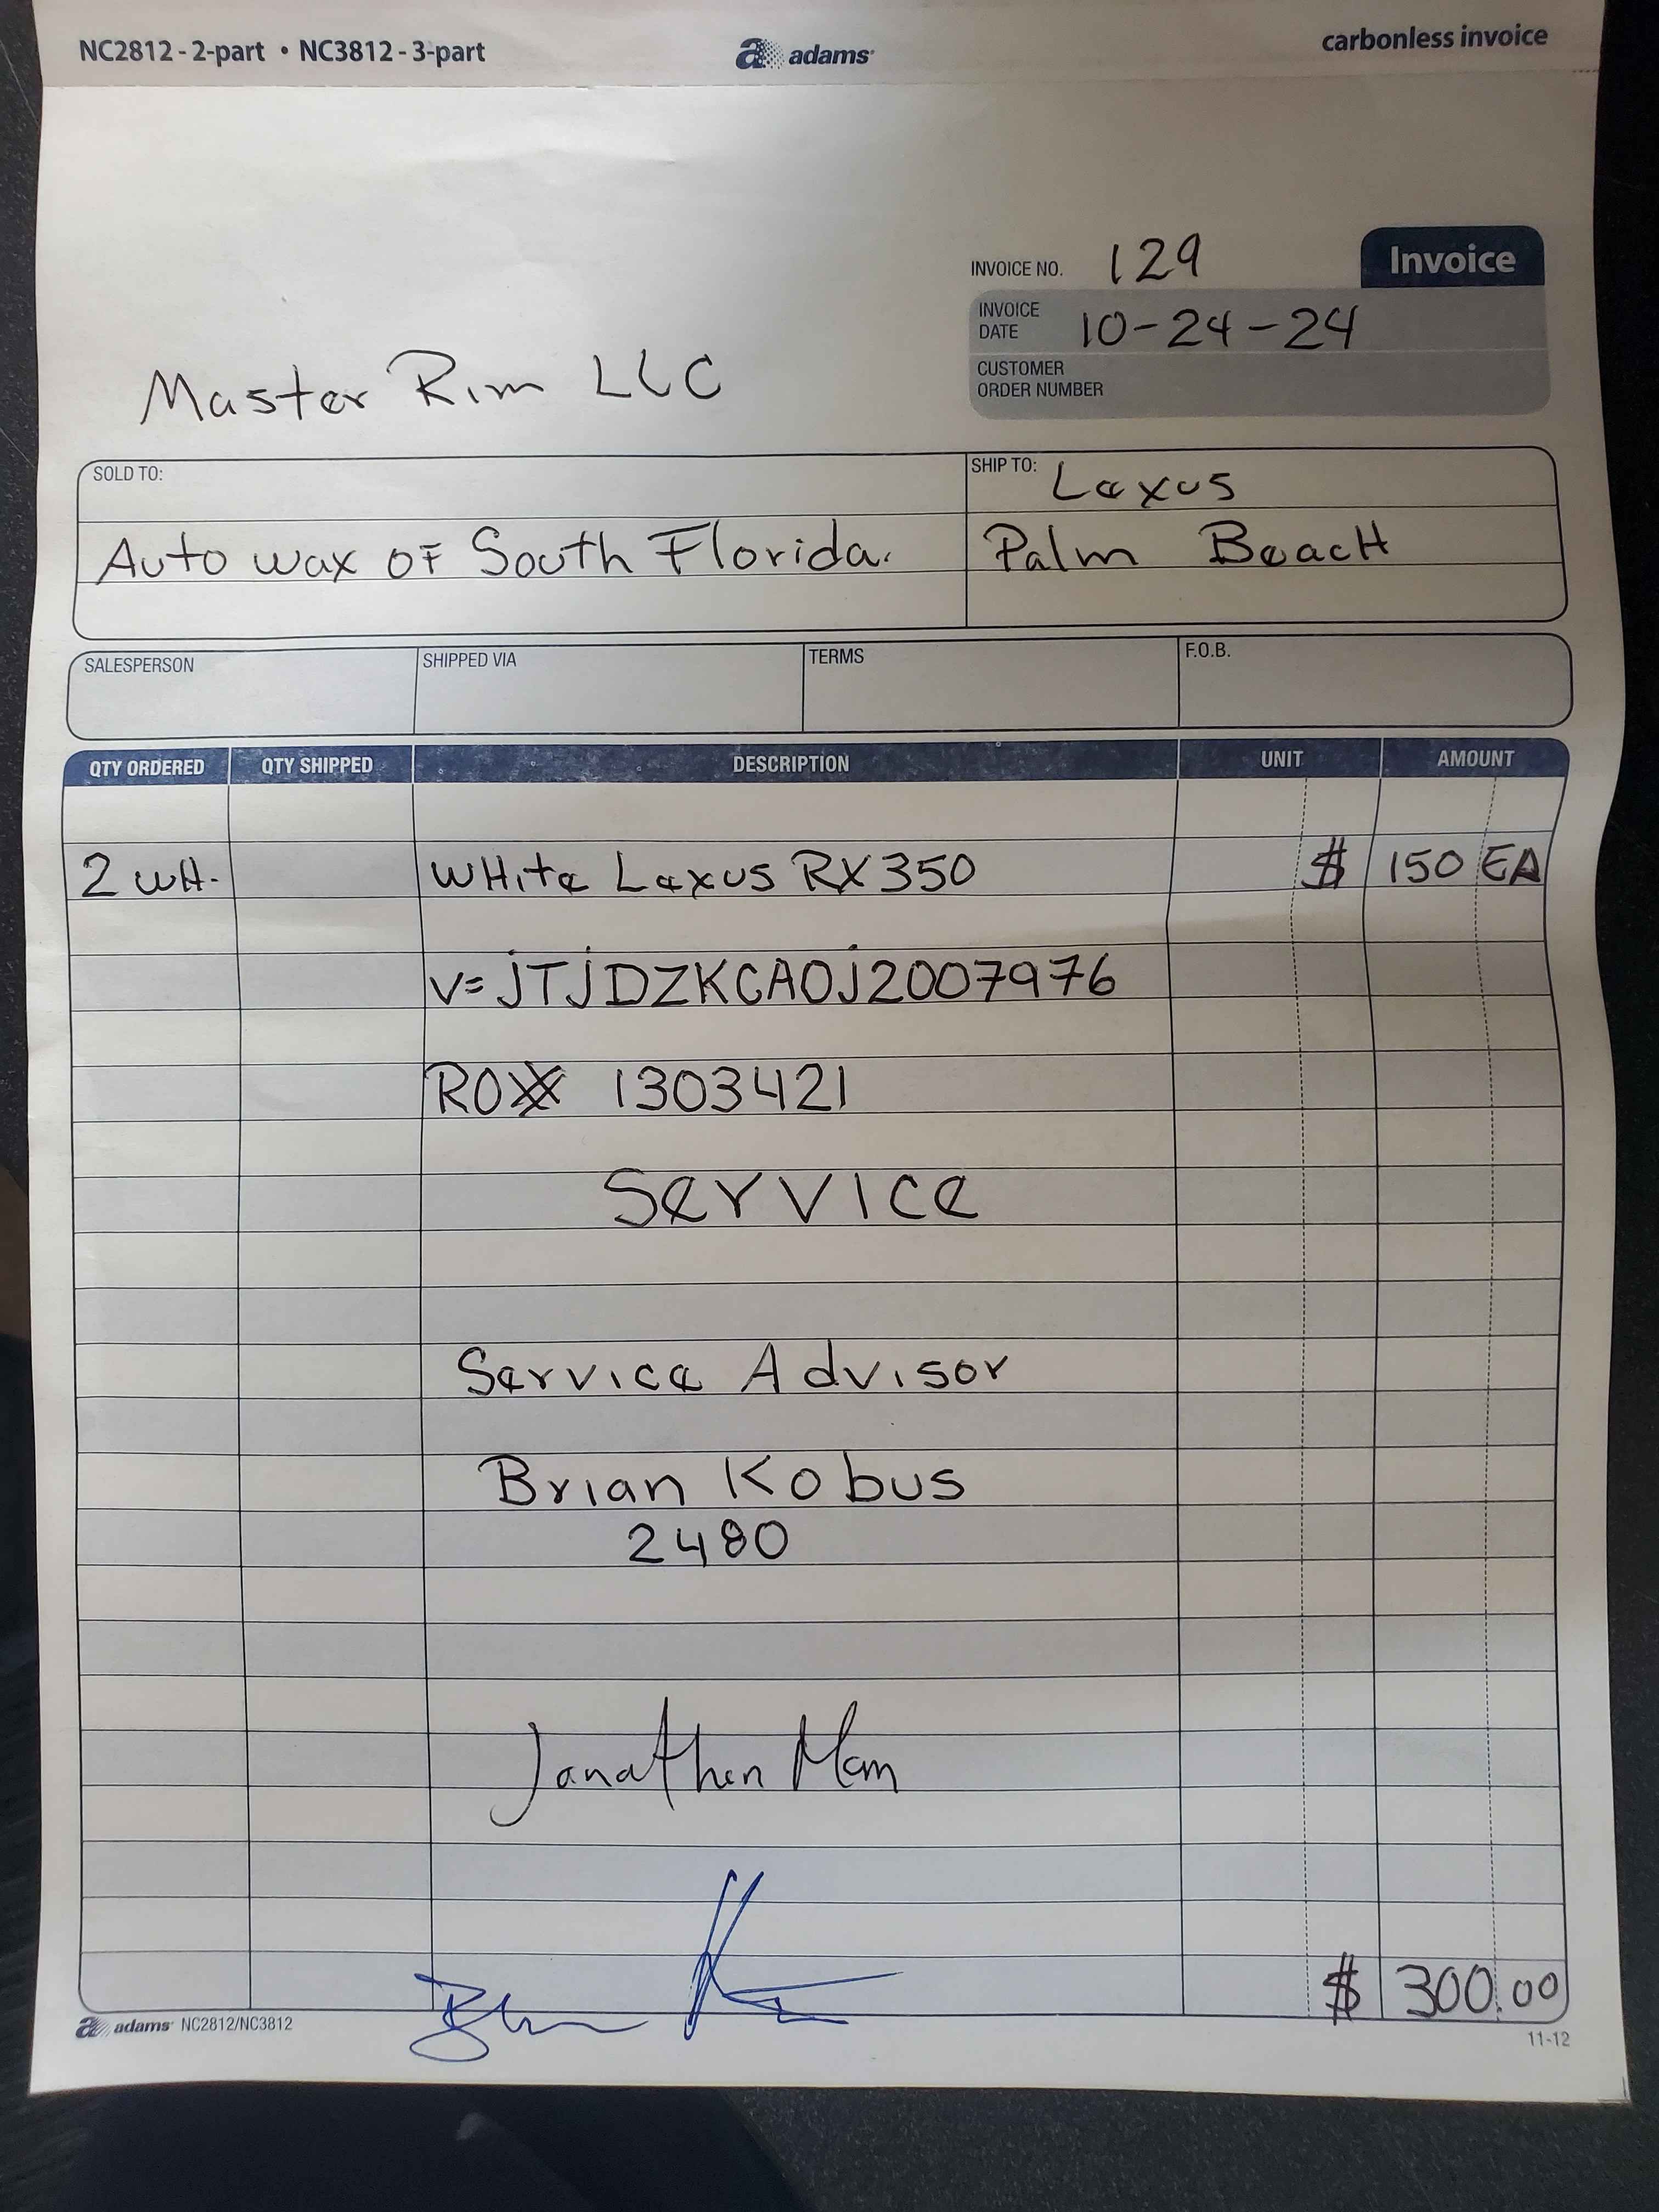 NC2812 - 2-part • NC3812 - 3-part
adams
carbonless invoice
Invoice
INVOICE NO. 129
INVOICE DATE 10-24-24
CUSTOMER ORDER NUMBER
Master Rim LLC
SOLD TO:
Auto wax of South Florida.
SHIP TO: Lexus
Palm Beach
SALESPERSON SHIPPED VIA TERMS F.O.B.
QTY ORDERED QTY SHIPPED DESCRIPTION UNIT AMOUNT
2 WH. WHite Lexus RX350 $ 150 EA
V=jTjDZKCA0j2007976
RO 1303421
Service
Service Advisor
Brian Kobus
2480
Janathen
$ 300.00
adams NC2812/NC3812
11-12